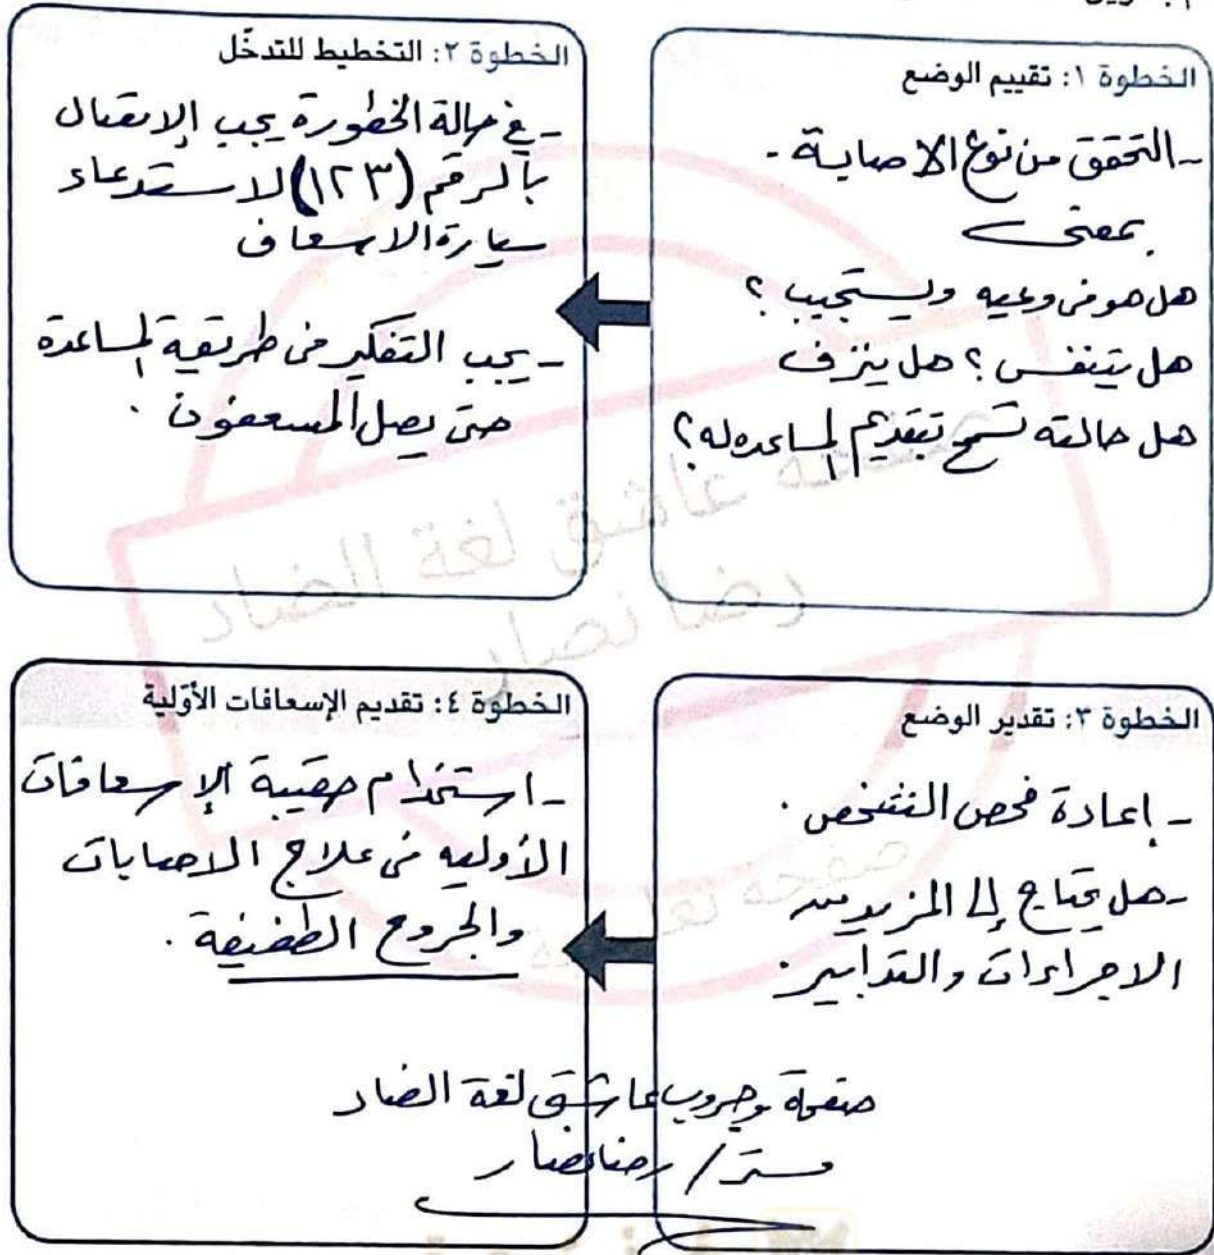 الخطوة ١: تقييم الوضع
- التحقق من نوع الاصابة -
بمعنى
هل هو فى وعيه ويستجيب ؟
هل يتنفس ؟ هل ينزف
هل حالته تسمح بتقديم المساعده له؟
الخطوة ٢: التخطيط للتدخّل
- في حالة الخطورة يجب الإتصال
بالرقم (١٢٣) لاستدعاء
سيارة الاسعاف
- يجب التفكير فى طريقة المساعدة
حتى يصل المسعفون .
الخطوة ٣: تقدير الوضع
- إعادة فحص الشخص .
- هل يحتاج إلى المزيد من
الاجراءات والتدابير .
الخطوة ٤: تقديم الإسعافات الأوّلية
- استخدام حقيبة الإسعافات
الأوليه فى علاج الاصابات
والجروح الطفيفة .
صفحة وجروب عاشق لغة الضاد
مستر / رضا نصار
عاشق لغة الضاد
رضا نصار
صفحة